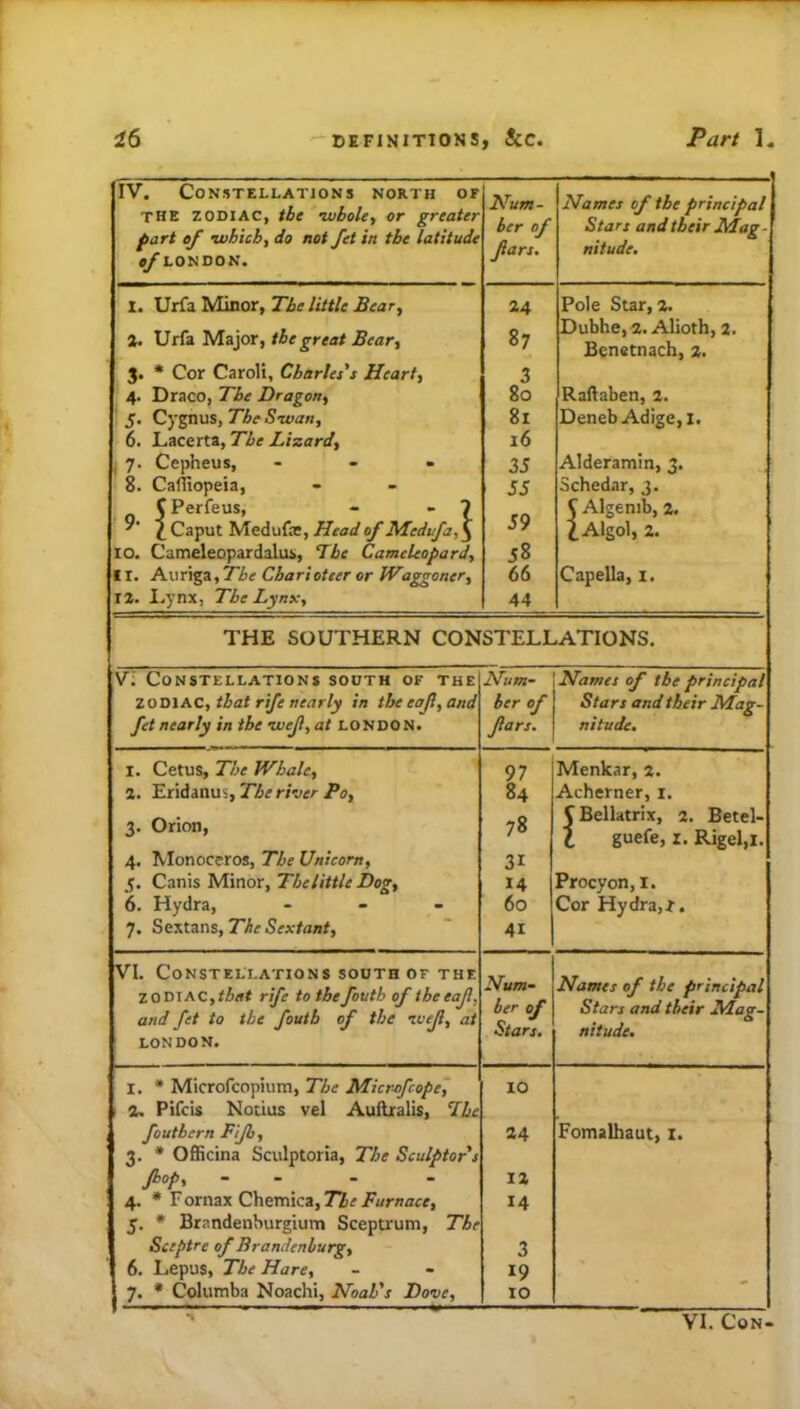 26 DEFINITIONS, &c. Part I.
IV. CONSTELLATIONS NORTH OF THE ZODIAC, the whole, or greater part of which, do not ſet in the latitude of LONDON. | Number of ſtars. | Names of the principal Stars and their Magnitude.
1. Urſa Minor, The little Bear, 24 Pole Star, 2.
2. Urſa Major, the great Bear, 87 Dubhe, 2. Alioth, 2.
Benetnach, 2.
3. * Cor Caroli, Charles's Heart, 3
4. Draco, The Dragon, 80 Raſtaben, 2.
5. Cygnus, The Swan, 81 Deneb Adige, 1.
6. Lacerta, The Lizard, 16
7. Cepheus, - - - 35 Alderamin, 3.
8. Caſſiopeia, - - 55 Schedar, 3.
9. { Perſeus, - - } 59 { Algenib, 2.
{ Caput Meduſæ, Head of Meduſa, } { Algol, 2.
10. Cameleopardalus, The Cameleopard, 58
11. Auriga, The Charioteer or Waggoner, 66 Capella, 1.
12. Lynx, The Lynx, 44
THE SOUTHERN CONSTELLATIONS.
V. CONSTELLATIONS SOUTH OF THE ZODIAC, that riſe nearly in the eaſt, and ſet nearly in the weſt, at LONDON. | Number of ſtars. | Names of the principal Stars and their Magnitude.
1. Cetus, The Whale, 97 Menkar, 2.
2. Eridanus, The river Po, 84 Acherner, 1.
3. Orion, 78 { Bellatrix, 2. Betel-
{ gueſe, 1. Rigel, 1.
4. Monoceros, The Unicorn, 31
5. Canis Minor, The little Dog, 14 Procyon, 1.
6. Hydra, - - - 60 Cor Hydra, 1.
7. Sextans, The Sextant, 41
VI. CONSTELLATIONS SOUTH OF THE ZODIAC, that riſe to the ſouth of the eaſt, and ſet to the ſouth of the weſt, at LONDON. | Number of Stars. | Names of the principal Stars and their Magnitude.
1. * Microſcopium, The Microſcope, 10
2. Piſcis Notius vel Auſtralis, The
ſouthern Fiſh, 24 Fomalhaut, 1.
3. * Officina Sculptoria, The Sculptor's
ſhop, - - - - 12
4. * Fornax Chemica, The Furnace, 14
5. * Brandenburgium Sceptrum, The
Sceptre of Brandenburg, 3
6. Lepus, The Hare, - - 19
7. * Columba Noachi, Noah's Dove, 10
VI. CON-